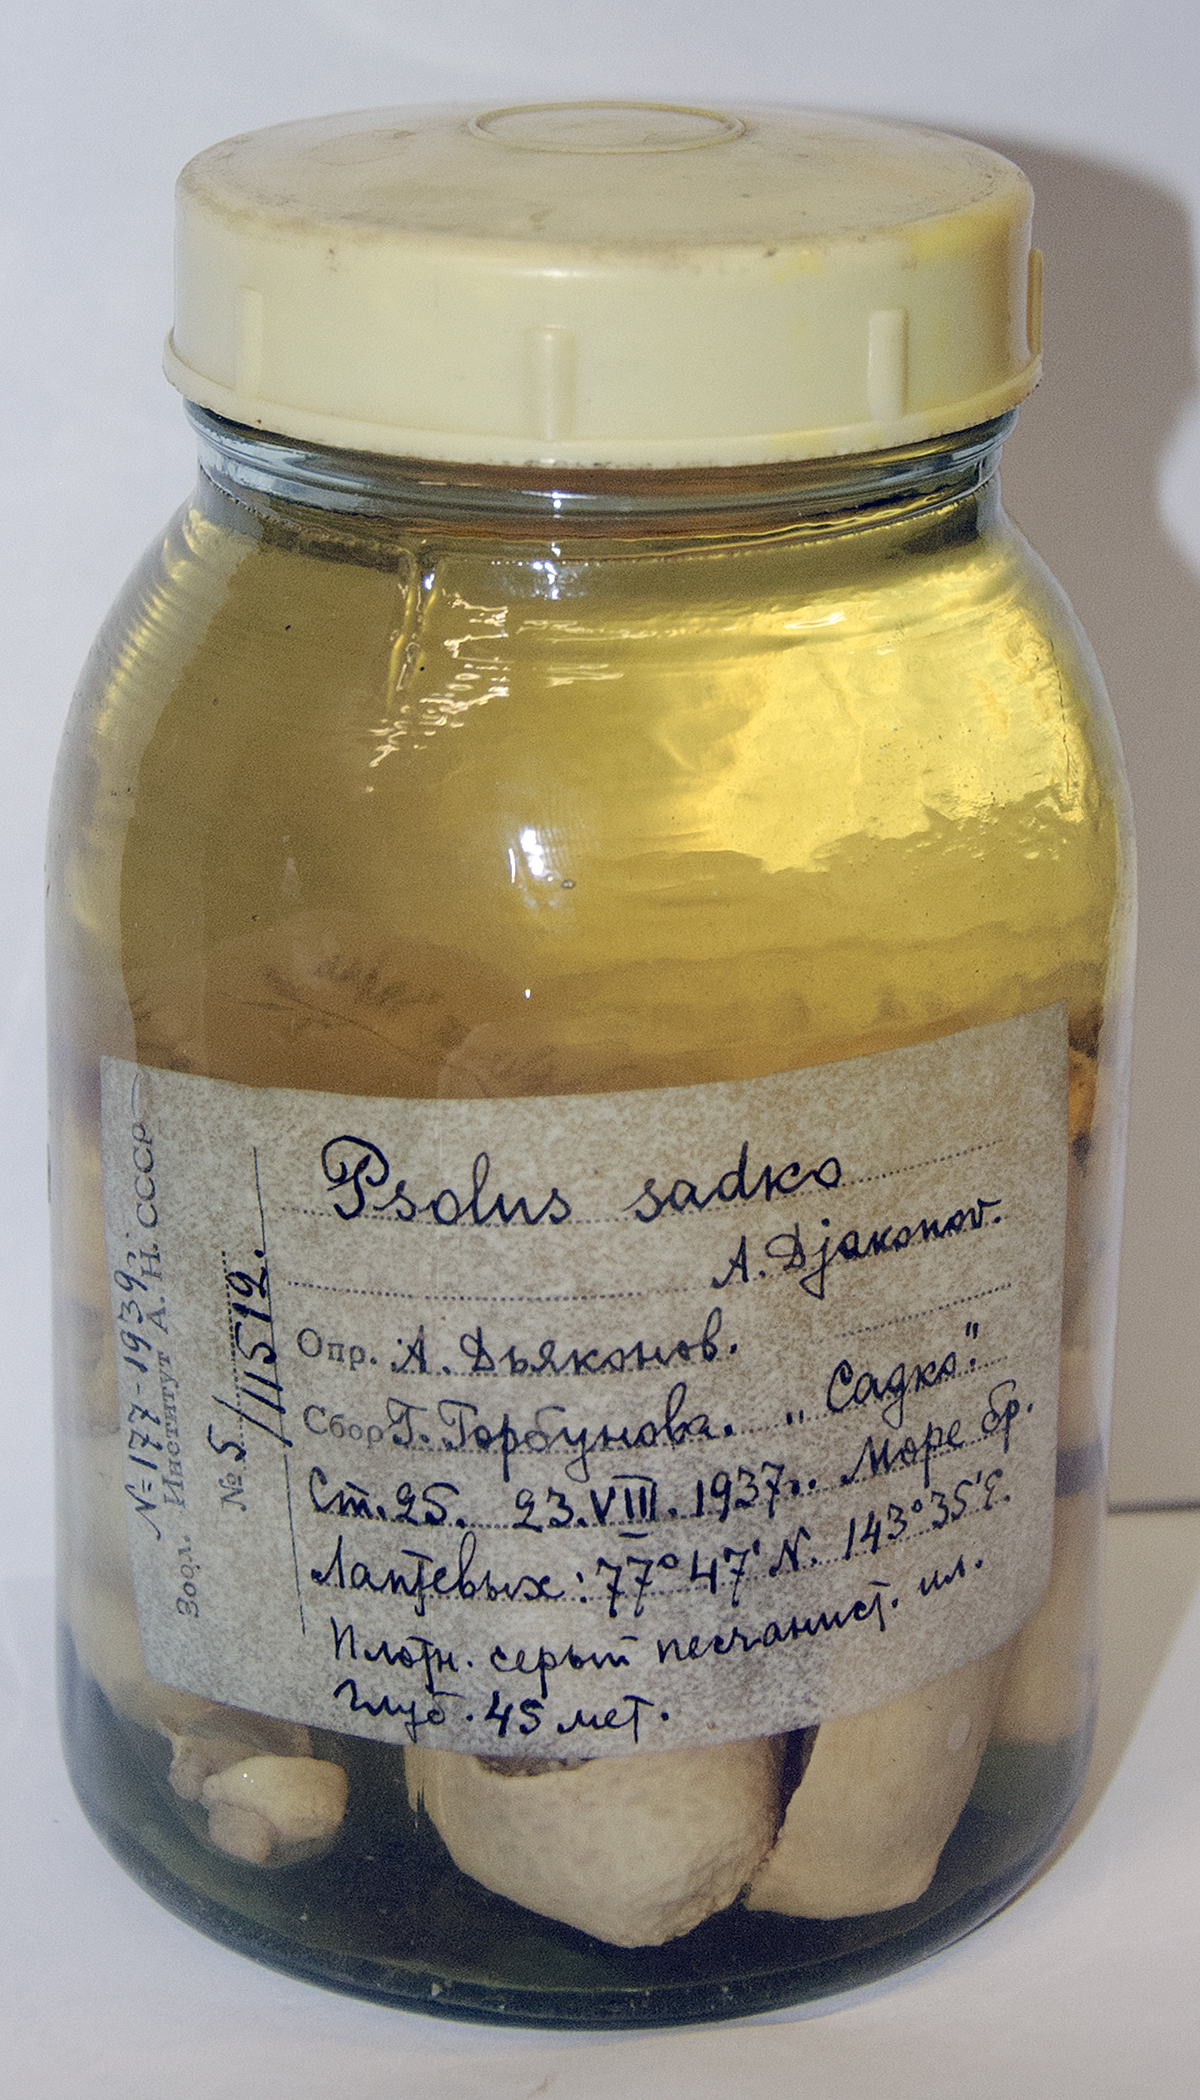 Psolus sadko
A. Djakonov.
Опр. А. Дьяконов.
Сбор Г. Горбунова. „Садко."
Ст. 25. 23.VIII.1937г. Море бр.
Лаптевых: 77°47'N. 143°35'E.
Плотн. серый песчанист. ил.
Глуб. 45 мет.
№ 5/11512.
Зоол. Институт А. Н. СССР
N=177-1939